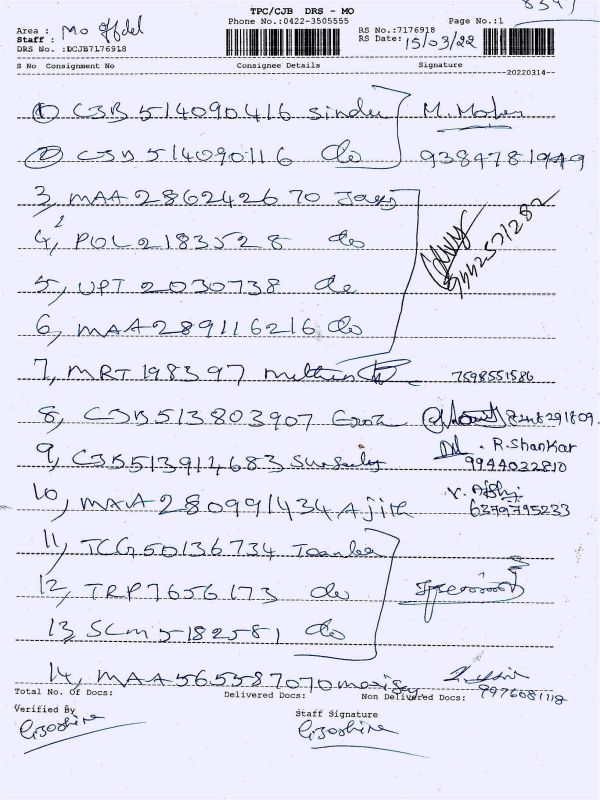 TPC/CJB DRS - MO
Phone No.:0422-3505555 Page No.:1
Area : Mo offdel RS No.:7176918
Staff : RS Date: 15/03/22
DRS No. :DCJB7176918
S No Consignment No Consignee Details Signature
20220314
1) CJB 514090416 Sindu M. Mohan
2) CJB 514090116 do 9384781949
3, MAA 286242670
4, POL 2183528 do 9442571282
5, UPT 2030738 do
6, MAA 289116216 do
7, MRT 198397 7598551586
8, CJB 513803907
9, CJB 513914683 R.Shankar
9944032810
10, MAA 280991434 Ajith 6379795233
11, TCG50136734
12, TRP 7656173 do
13, SCM 5182581 do
14, MAA 565587070
9976081118
Total No. Of Docs: Delivered Docs: Non Delivered Docs:
Verified By Staff Signature